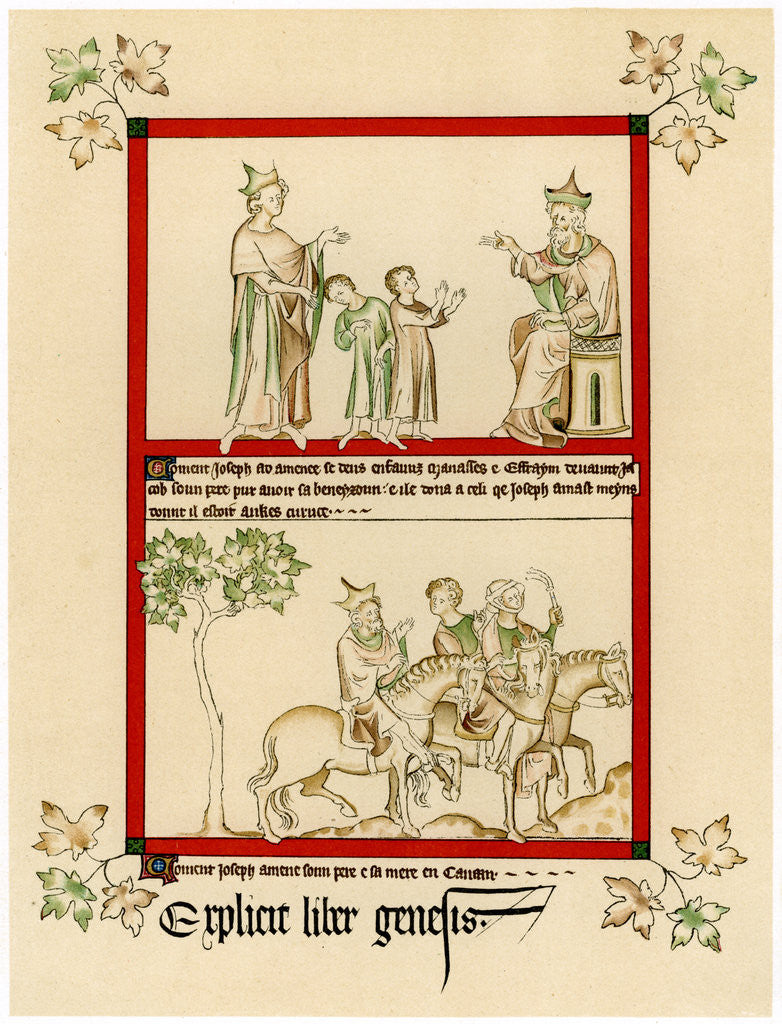 Coment Joseph ad amence se deus enfaunz Manasses e Effraym devaunt Ja
cob soun pere pur avoir sa beneyzoun : e ile dona a celi qe Joseph amast meyns
dount il estoit aukes curuce
Coment Joseph amene soun pere e sa mere en Canan
Explicit liber genesis